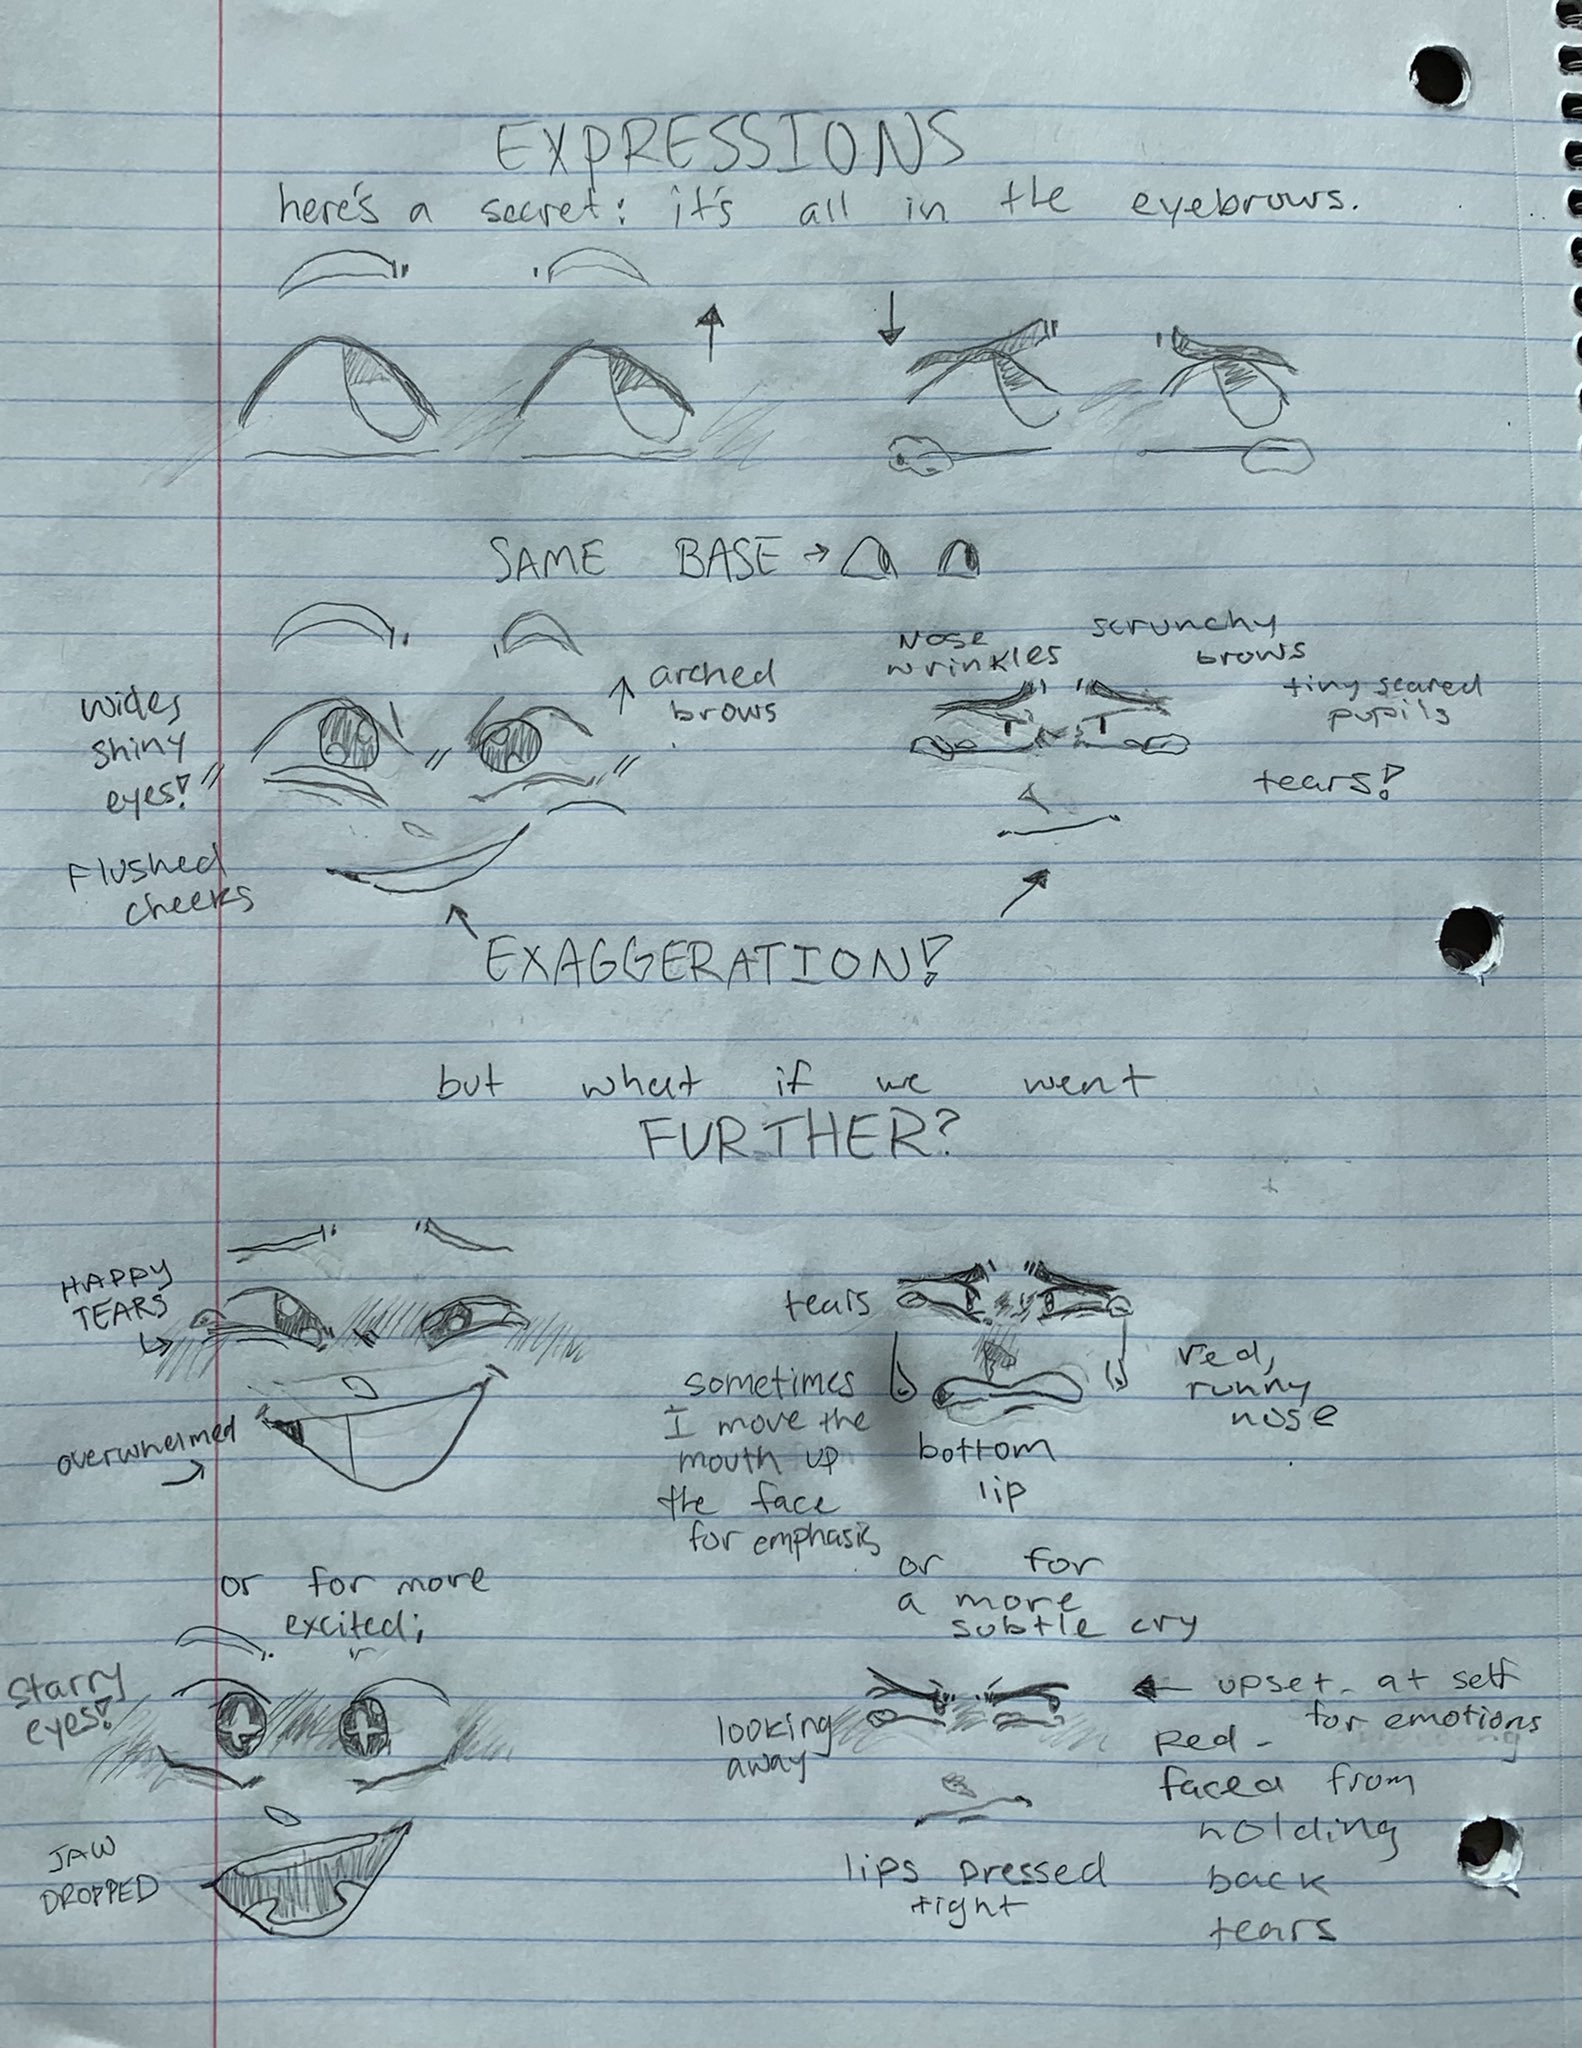 EXPRESSIONS
here's a secret: it's all in the eyebrows.
SAME BASE →
wides
shiny
eyes!
arched
brows
Flushed
cheeks
Nose
wrinkles
scrunchy
brows
tiny scared
pupils
tears!
EXAGGERATION!
but what if we went
FURTHER?
HAPPY
TEARS
overwhelmed
tears
sometimes
I move the
mouth up
the face
for emphasis
bottom
lip
red,
runny
nose
or for more
excited;
starry
eyes!
JAW
DROPPED
or for
a more
subtle cry
looking
away
← upset at self
for emotions
Red-
faced from
holding
back
tears
lips pressed
tight